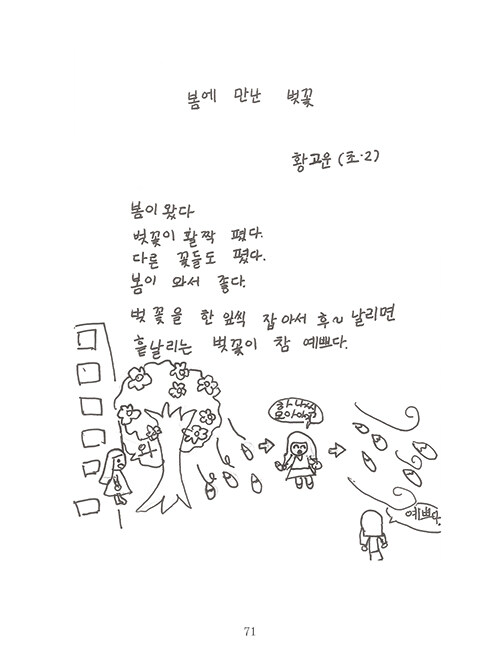 봄에 만난 벚꽃
황고운 (초.2)
봄이 왔다
벚꽃이 활짝 폈다.
다른 꽃들도 폈다.
봄이 와서 좋다.
벚꽃을 한 잎씩 잡아서 후~ 날리면
흩날리는 벚꽃이 참 예쁘다.
와
하나씩
모아야징
예쁘다.
71